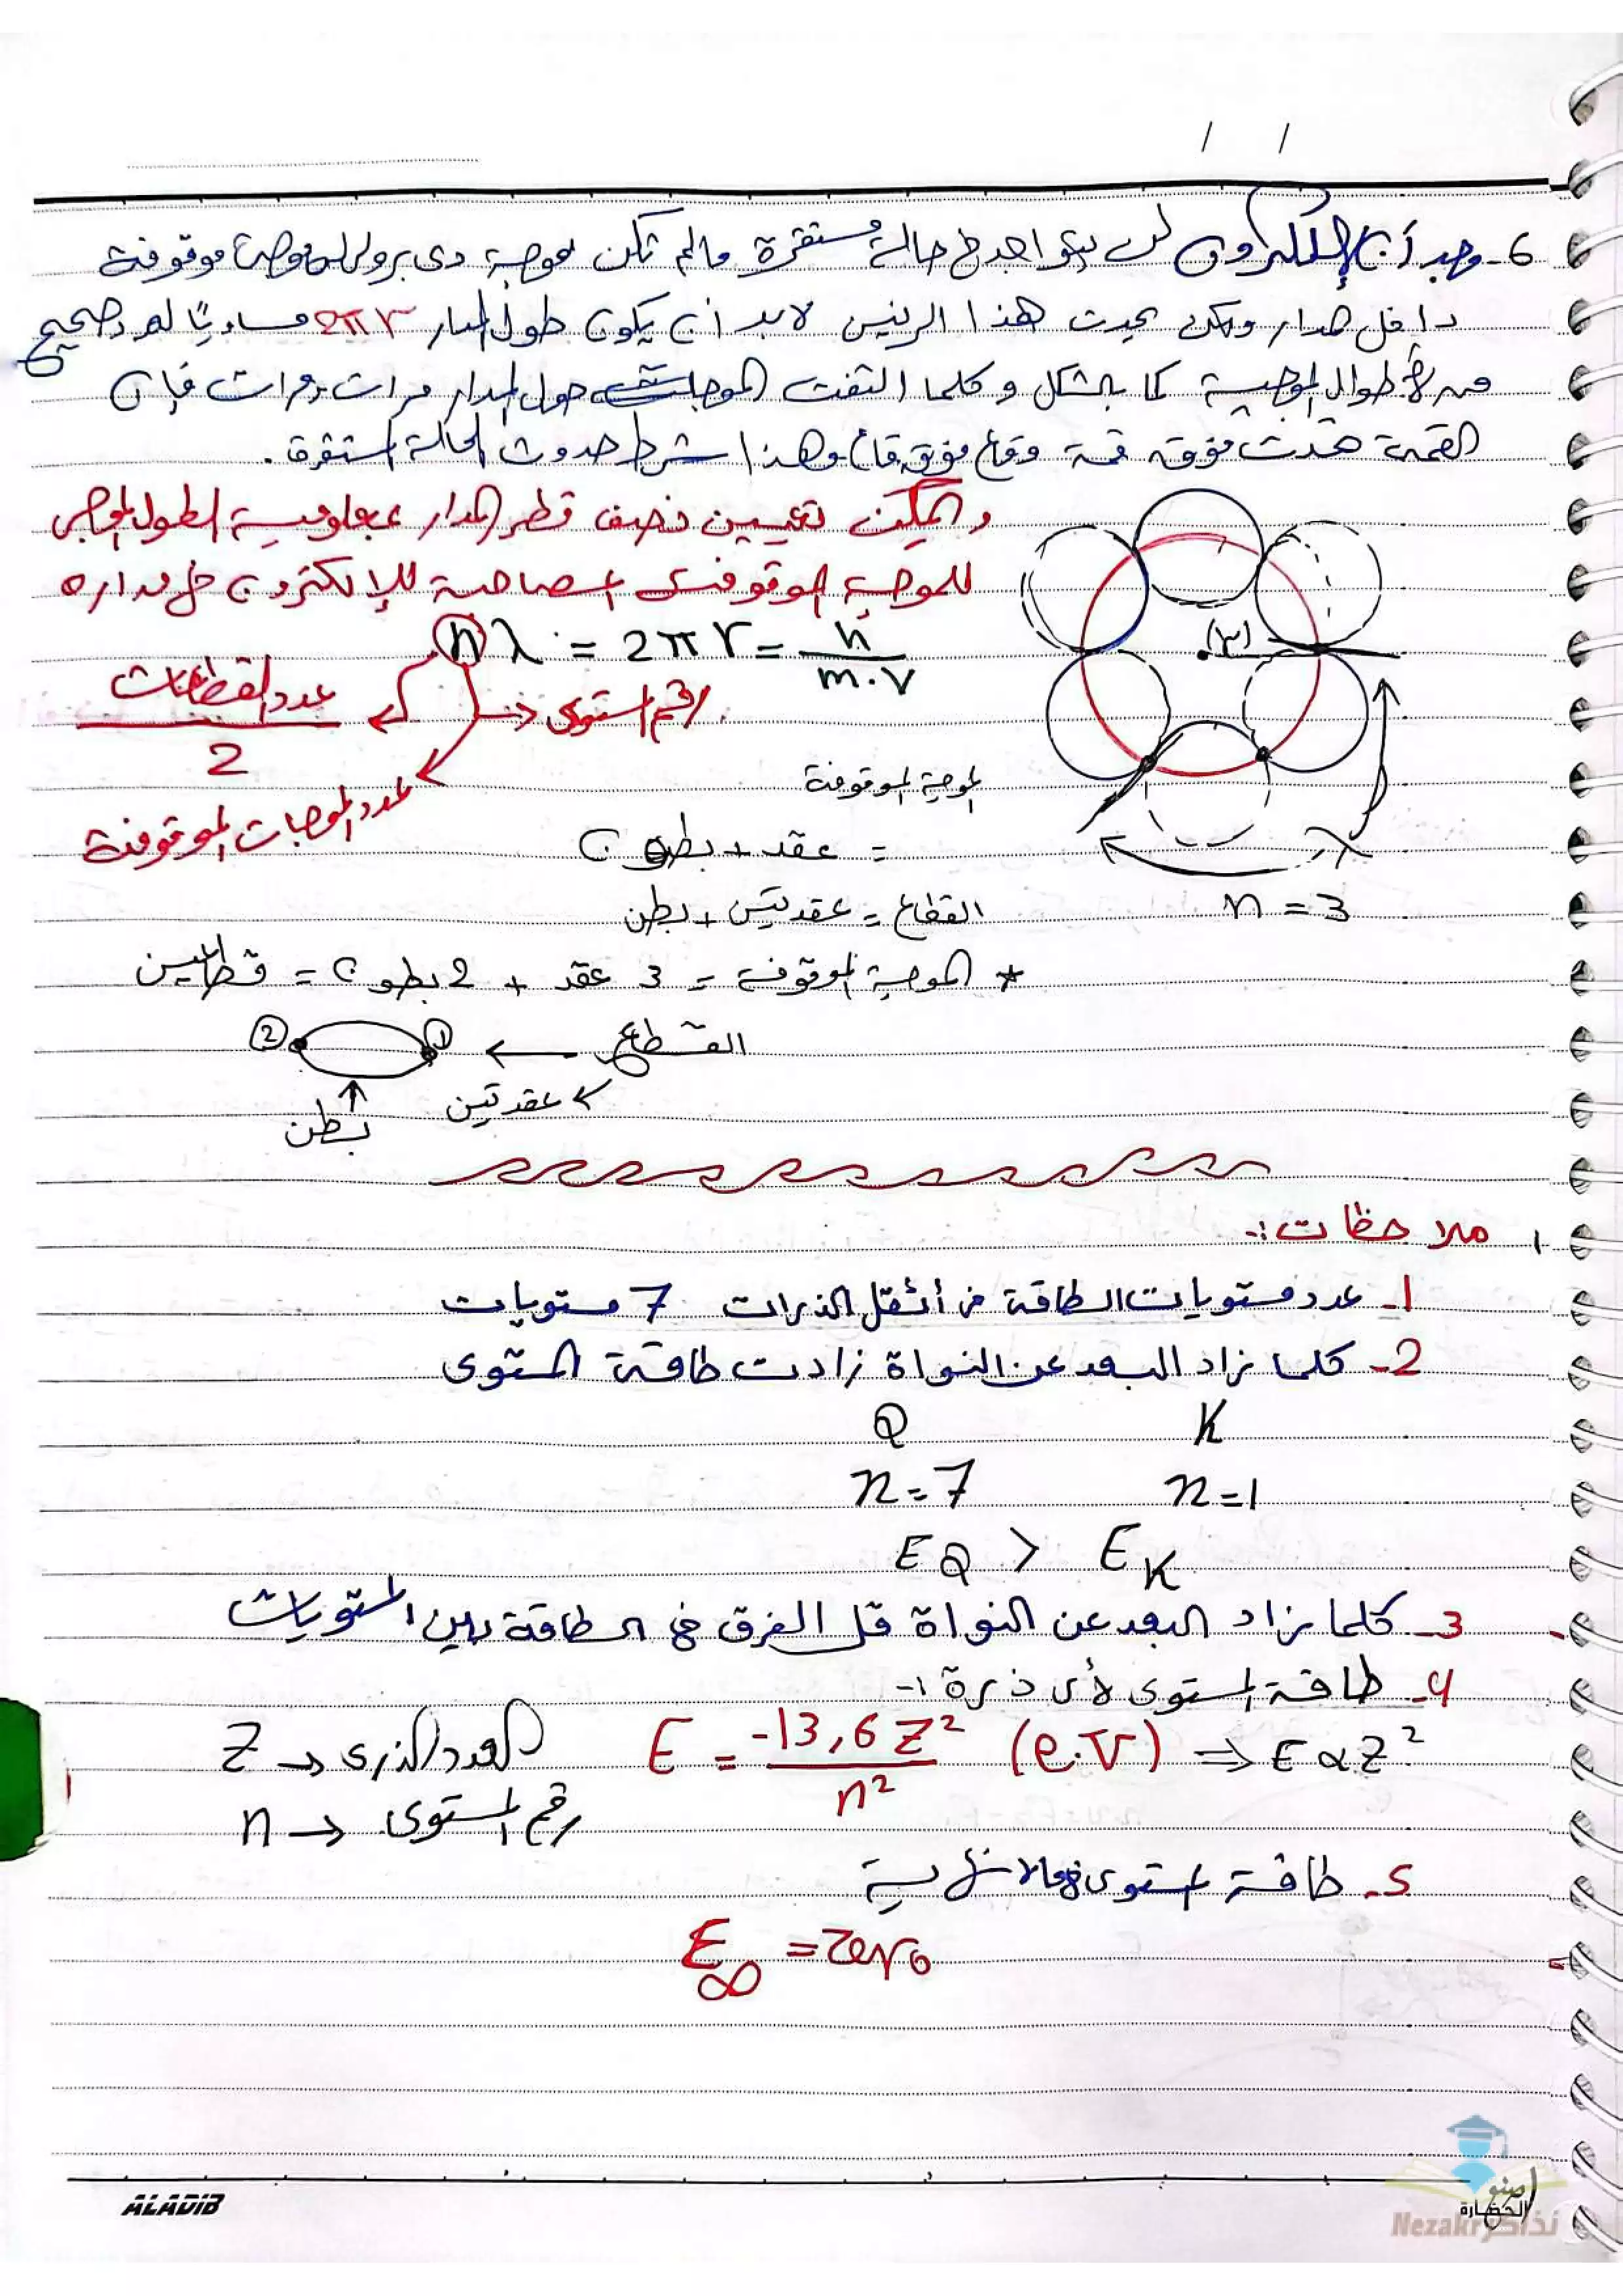 / /
6- وجد أن الإلكترون لن يتواجد في حالة مستقرة مالم تكن موجة دى برولى موجة موقوفة
داخل مدار ولكى يحدث هذا الرنين لابد أن يكون طول المدار 2πr مساويًا لعدد صحيح
من الأطوال الموجية كما بالشكل وكلما التفت الموجات حول المدار مرات ومرات فإن
القمة تحدث فوق قمة وقاع فوق قاع وهذا شرط حدوث الحالة المستقرة.
ويمكن تعيين نصف قطر المدار بمعلومية الطول الموجى
للموجة الموقوفة المصاحبة للإلكترون في مداره
nλ = 2πr = h / m.v
(r)
عدد القطاعات / 2
رقم المستوى
عدد الموجات الموقوفة
الموجة الموقوفة
= عقد + بطون
القطاع = عقدتين + بطن
n = 3
* الموجة الموقوفة = 3 عقد + 2 بطون = قطاعين
القطاع ← ① ②
عقدتين
بطن
ملاحظات :-
1- عدد مستويات الطاقة في أثقل الذرات 7 مستويات
2- كلما زاد البعد عن النواة زادت طاقة المستوى
K Q
n=1 n=7
EQ > EK
3- كلما زاد البعد عن النواة قل الفرق في الطاقة بين المستويات
4- طاقة المستوى لأى ذرة :-
E = -13,6 Z² / n² (e.V) ⇒ E α Z²
Z → العدد الذرى
n → رقم المستوى
5- طاقة مستوى مالانهاية
E∞ = Zero
ALADIB
صنو الحضارة
نذاكر Nezakr